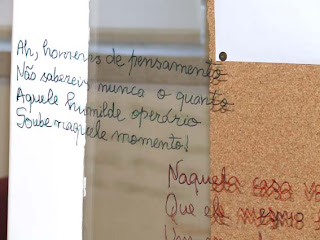 Ah, homens de pensamento
Não sabereis nunca o quanto
Aquele humilde operário
Soube naquele momento!
Naquela casa va
Que ele mesmo